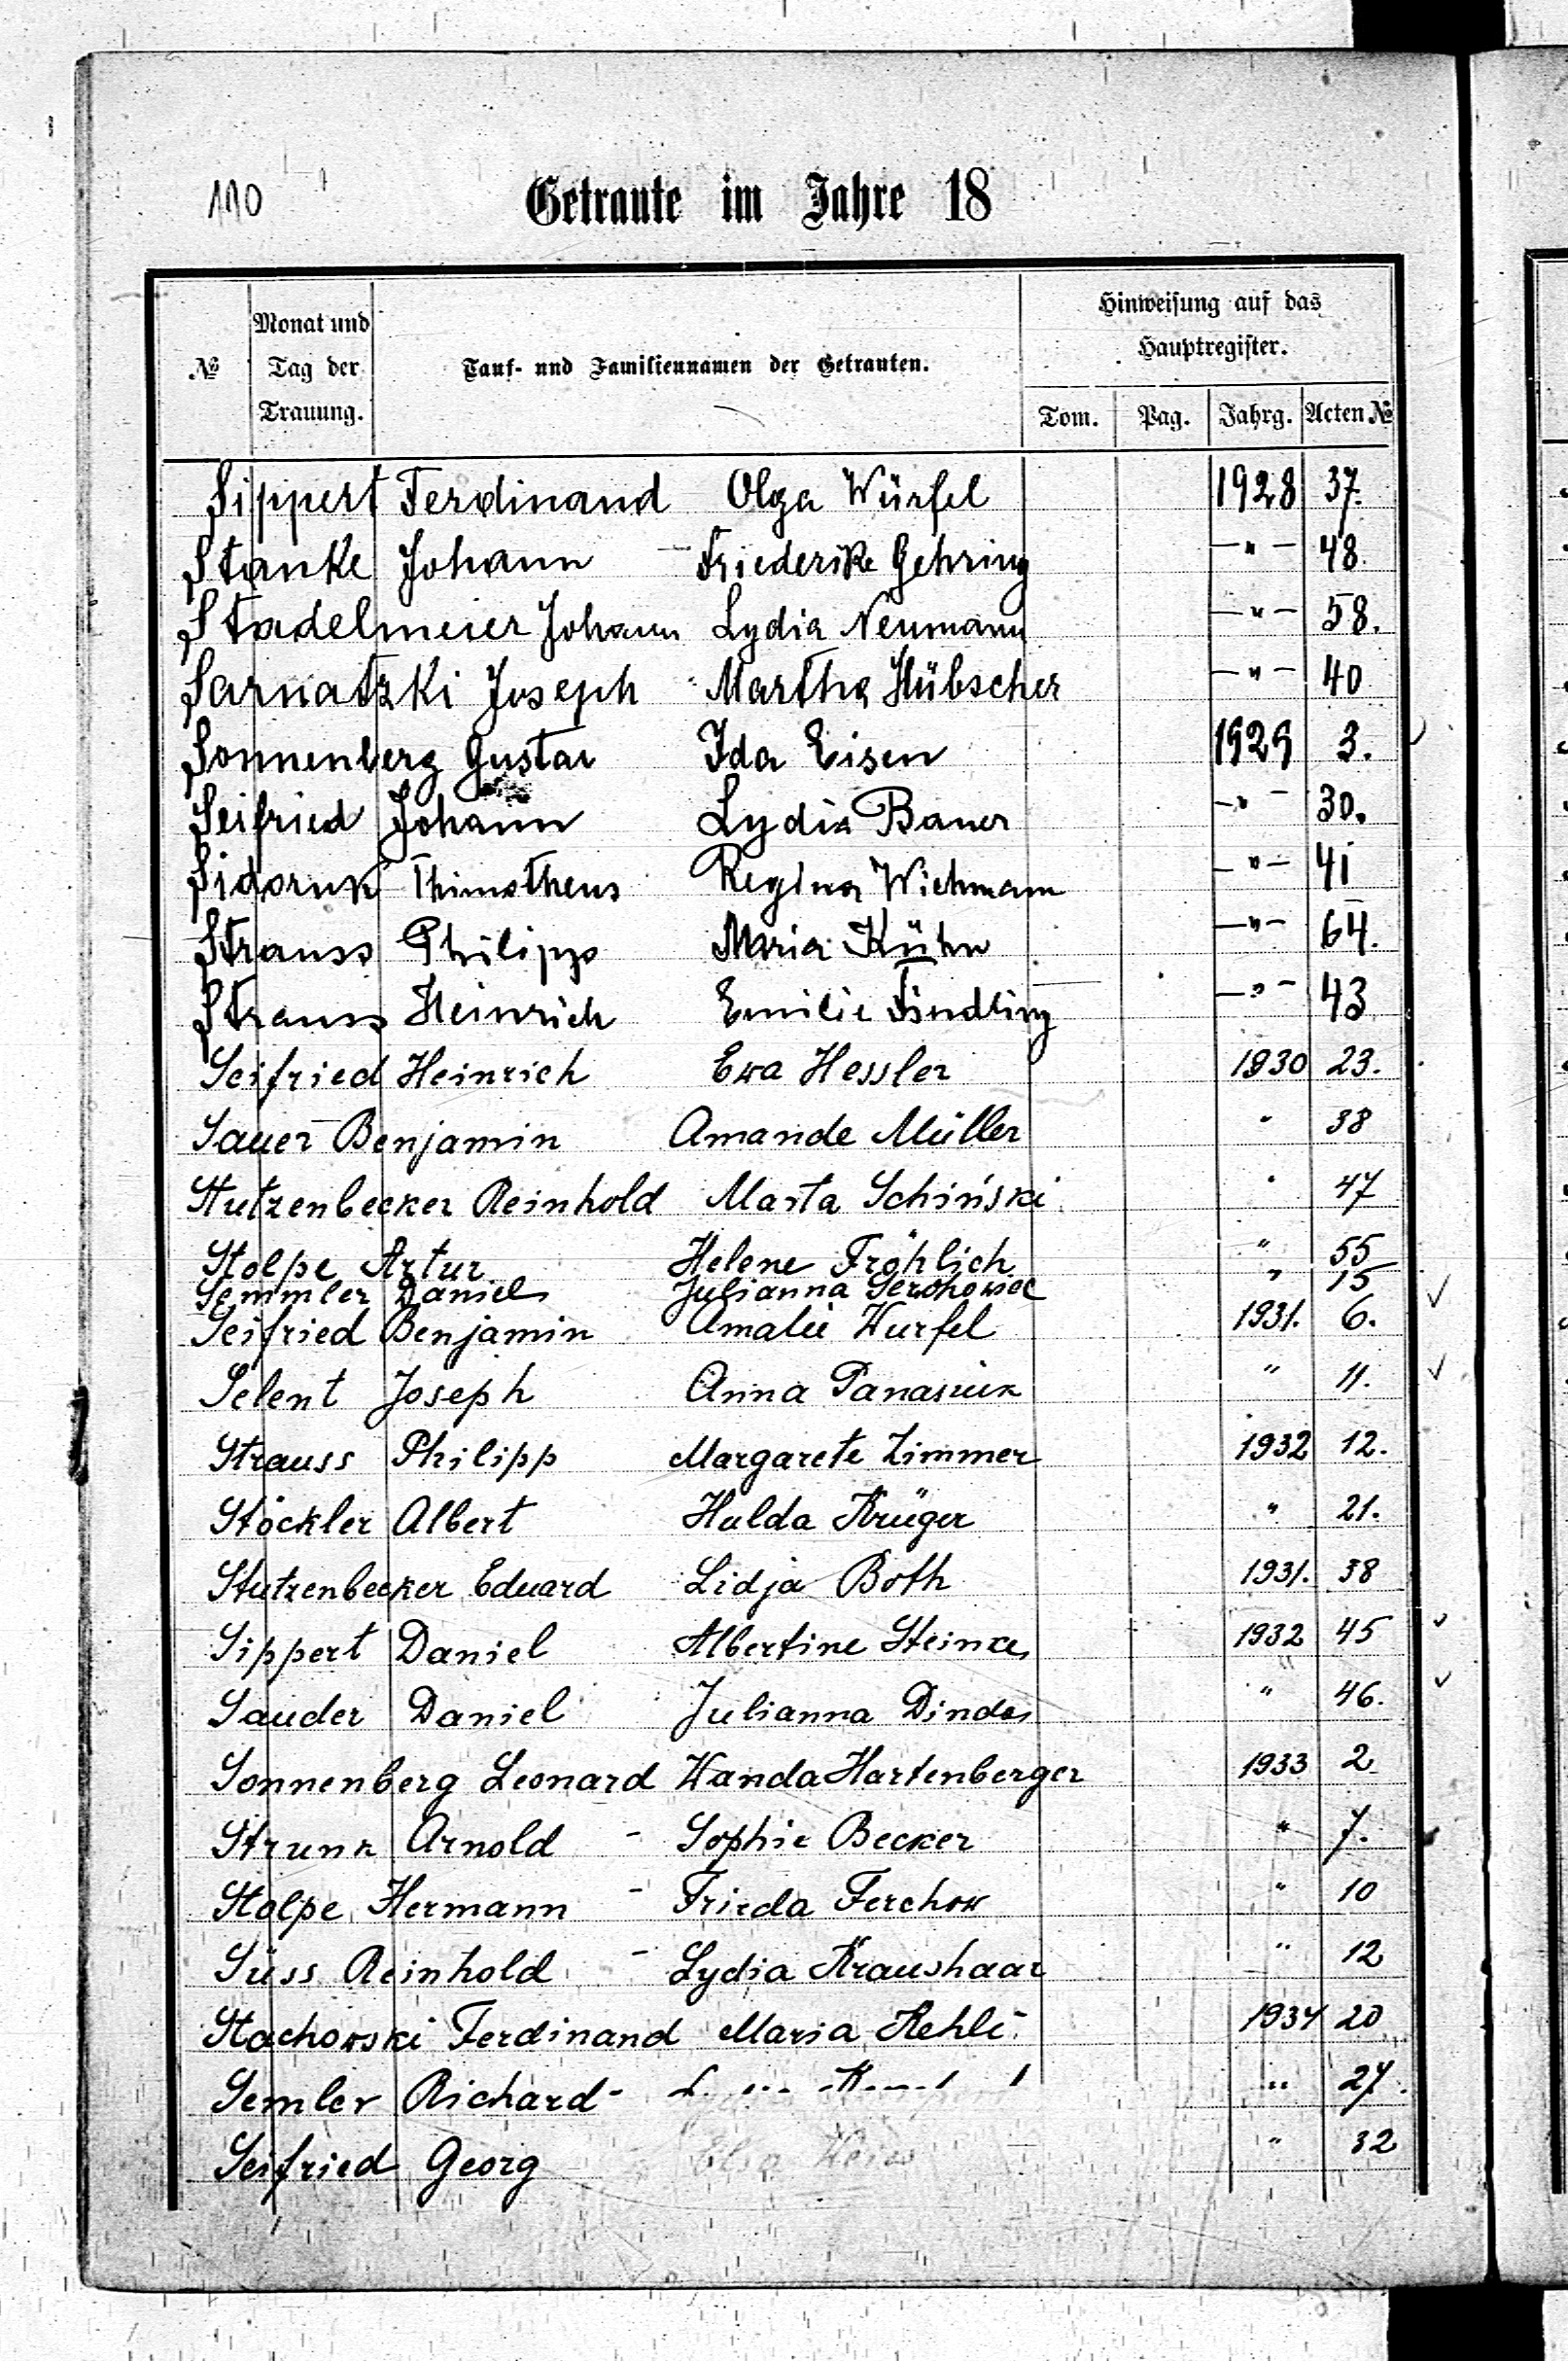 110
Getraute im Jahre 18
№ Monat und Tag der Trauung. Tauf- und Familiennamen der Getrauten. Hinweisung auf das Hauptregister.
Tom. Pag. Jahrg. Acten №
Sippert Ferdinand Olga Würfel 1928 37.
Stanke Johann Friederike Gehring —"— 48.
Stadelmeier Johann Lydia Neumann —"— 58.
Sarnatzki Joseph Martha Hübscher —"— 40
Sonnenberg Gustav Ida Eisen 1929 3.
Seifried Johann Lydia Bauer —"— 30.
Sidoruk Thimotheus Regina Wichmann —"— 41
Strauss Philipp Maria Kühn —"— 64.
Strauss Heinrich Emilie Findling —"— 43
Seifried Heinrich Ewa Hessler 1930 23.
Sauer Benjamin Amande Müller " 38
Stutzenbecker Reinhold Marta Schiński " 47
Stolpe Artur Helene Fröhlich " 55
Semmler Daniel Julianna " 15
Seifried Benjamin Amalie Wurfel 1931. 6.
Selent Joseph Anna Panasiuk " 11.
Strauss Philipp Margarete Zimmer 1932 12.
Stöckler Albert Hulda Krüger " 21.
Stutzenbecker Eduard Lidja Both 1931. 38
Sippert Daniel Albertine Steinke 1932 45
Sauder Daniel Julianna " 46.
Sonnenberg Leonard Wanda Hartenberger 1933 2
Strunk Arnold - Sophie Becker " 7.
Stolpe Hermann - Frieda Ferchow " 10
Süss Reinhold - Lydia Kraushaar " 12
Stachowski Ferdinand Maria Hehli 1934 20
Semler Richard - " 27.
Seifried Georg " 32